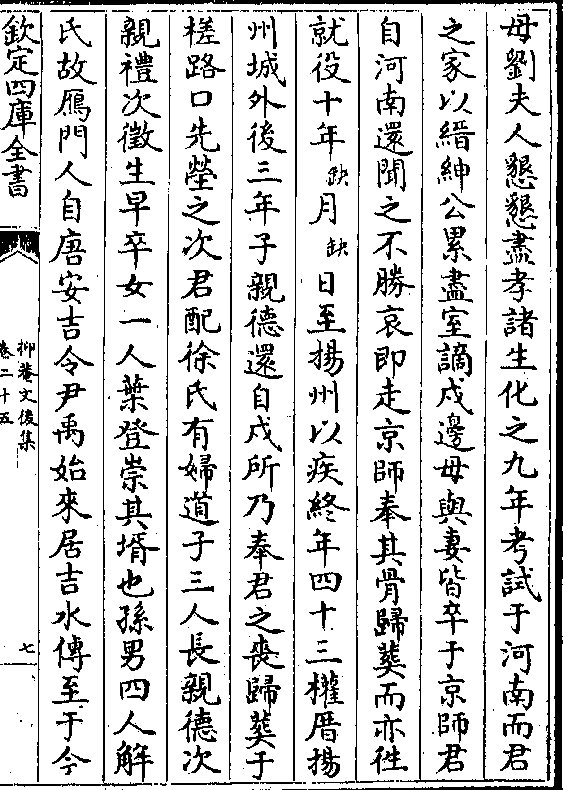 母劉夫人懇懇盡孝諸生化之九年考試于河南而君
之家以縉紳公累盡室謫戍邊母與妻皆卒于京師君
自河南還聞之不勝哀即走京師奉其骨歸葬而亦徃
就役十年缺月缺日至揚州以疾終年四十三權厝揚
州城外後三年子親德還自戍所乃奉君之喪歸葬于
槎路口先塋之次君配徐氏有婦道子三人長親德次
親禮次徵生早卒女一人葉登崇其壻也孫男四人解
氏故鴈門人自唐安吉令尹禹始來居吉水傳至于今
欽定四庫全書
抑菴文後集
卷二十五
七